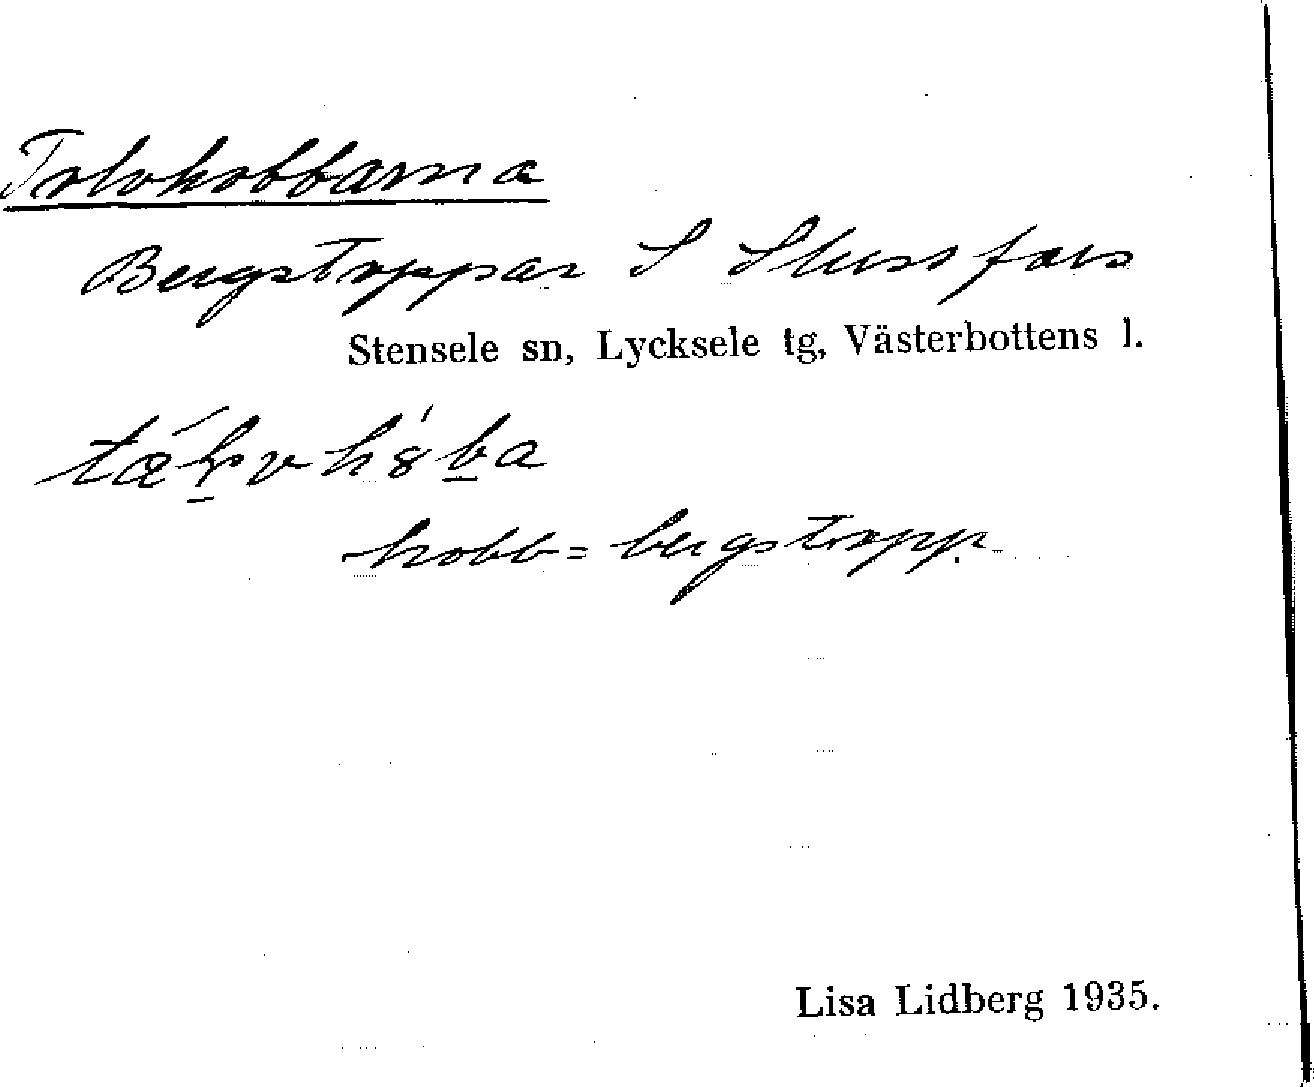 Tolvkobbarna
Bergstoppar S Slussfors
Stensele sn, Lycksele tg, Västerbottens l.
kobb = bergstopp.
Lisa Lidberg 1935.